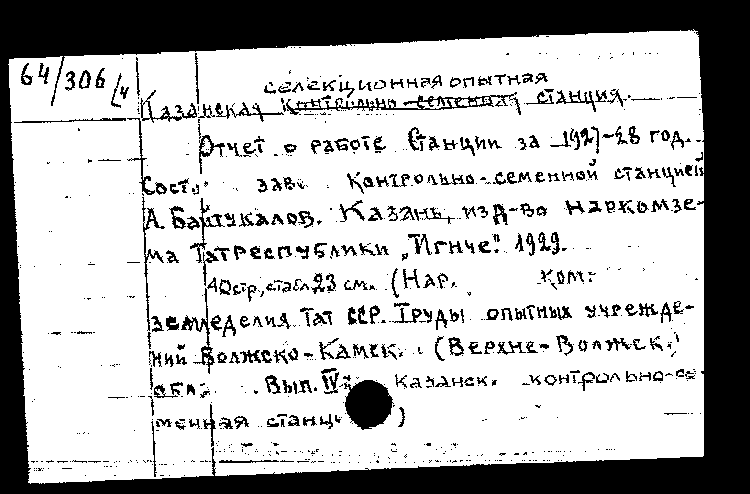 64/306/4
селекционная опытная
Казанская контрольно-семенная станция.
Отчет о работе Станции за 1927-28 год.
Сост. зав. Контрольно-семенной станцией
А. Байтукалов. Казань, изд-во Наркомзе-
ма Татреспублики „Игнче". 1929.
40 стр., стабл. 23 см. (Нар. ком.
земледелия Тат ССР. Труды опытных учрежде-
ний Волжско-Камск. (Верхне-Волжск.)
обл. Вып. IV: Казанск. контрольно-се-
менная станц )